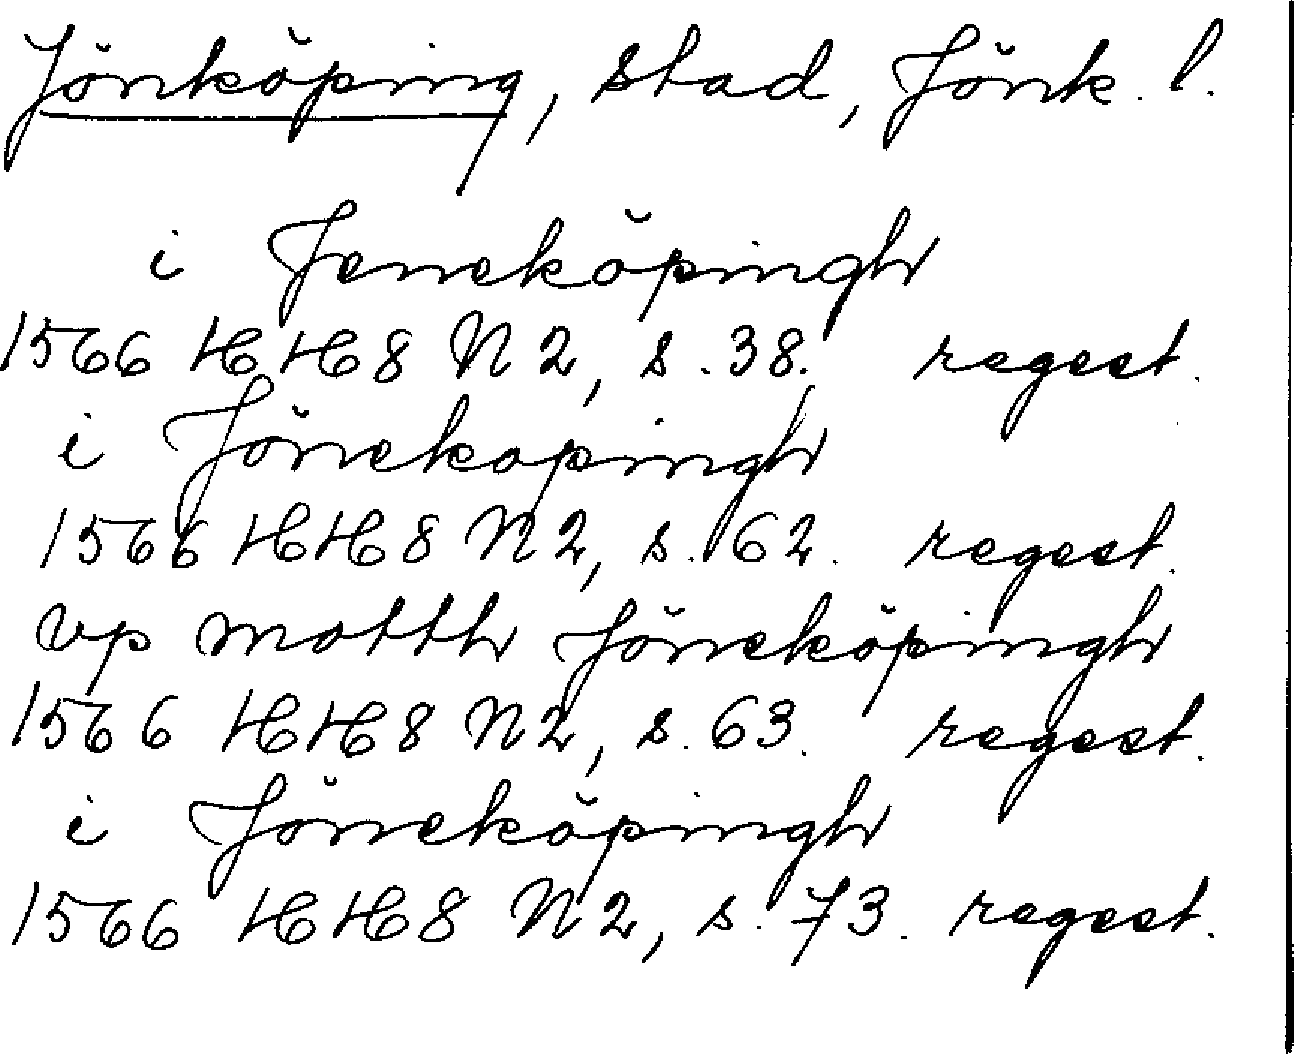 Jönköping, stad, Jönk. l.
i Jeneköpingh
1566 HH8 N2, s. 38. regest.
i Jönekopingh
1566 HH8 N2, s. 62. regest.
vp motth Jöneköpingh
1566 HH8 N2, s. 63. regest.
i Jöneköpingh
1566 HH8 N2, s. 73. regest.